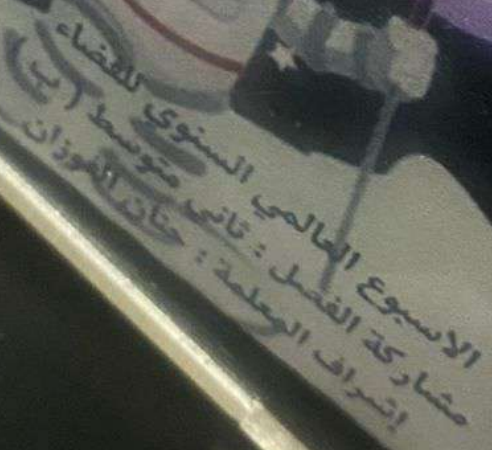 الاسبوع العالمي السنوي للفضاء
مشاركة الفصل : ثاني متوسط (ب)
إشراف المعلمة : حنان الفوزان